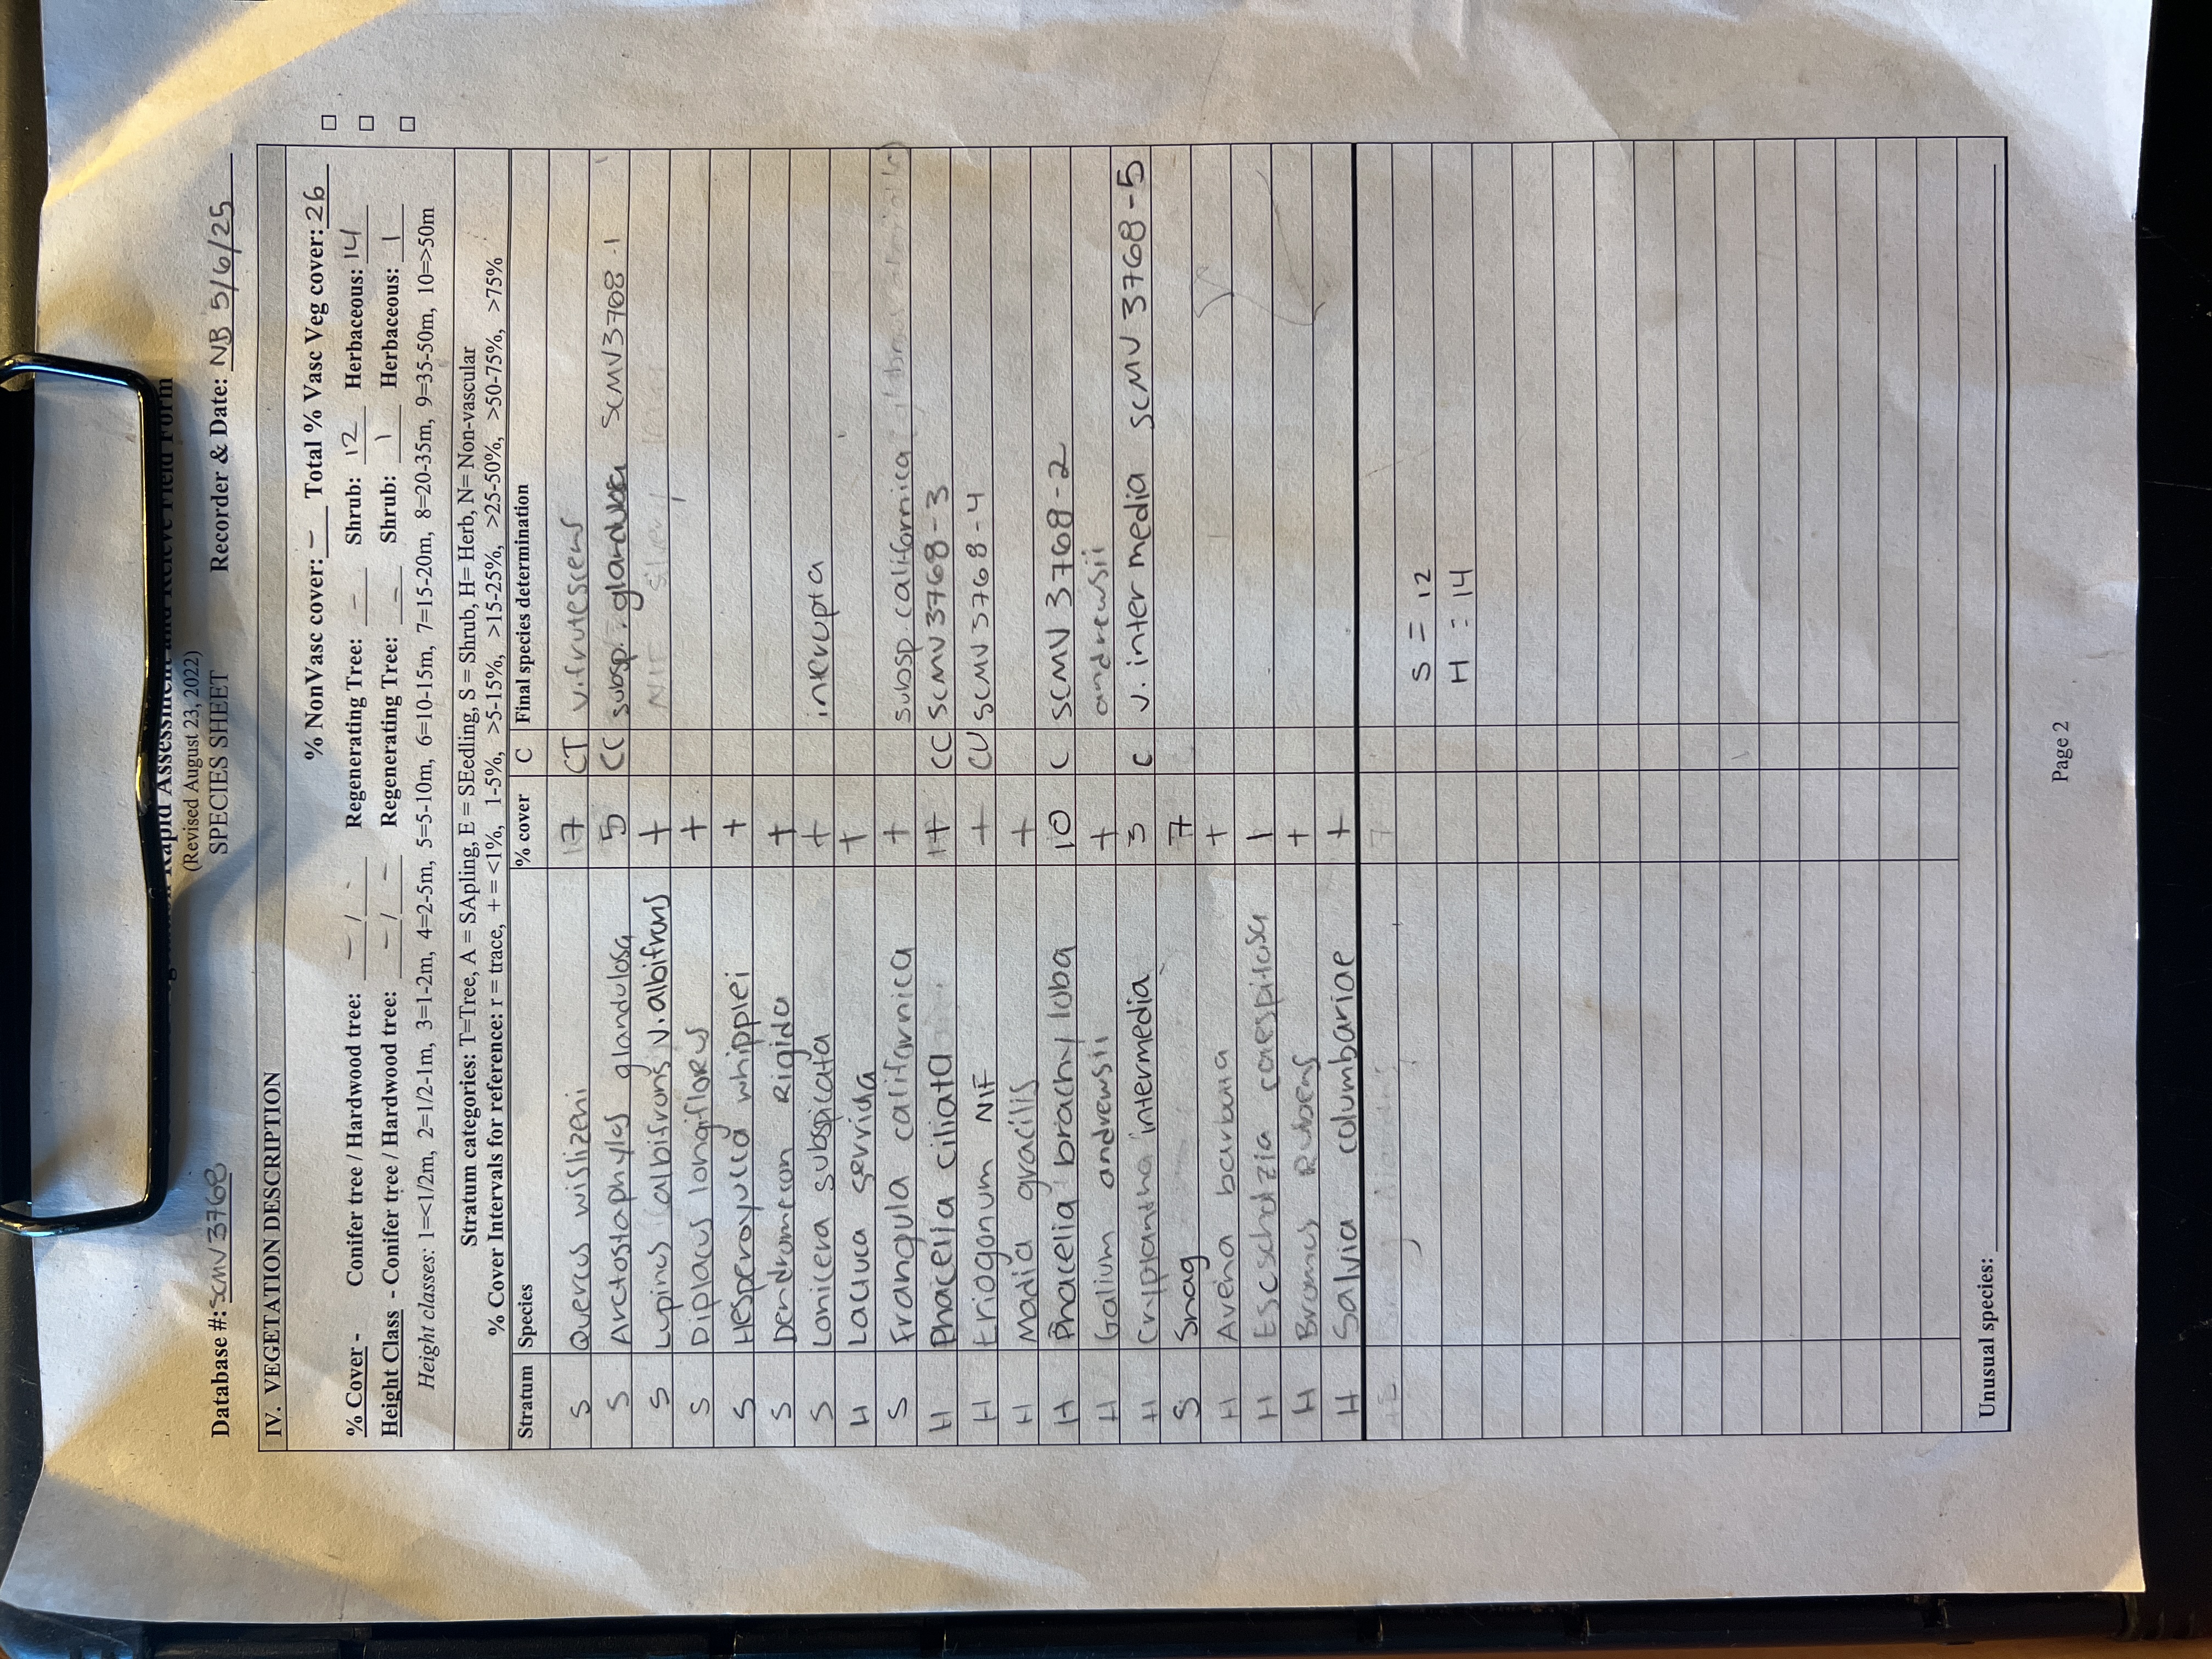 Rapid Assessment and Relevé Field Form
(Revised August 23, 2022)
SPECIES SHEET
Database #: SCMV3768 Recorder & Date: NB 5/6/25
IV. VEGETATION DESCRIPTION
% NonVasc cover: - Total % Vasc Veg cover: 26
% Cover - Conifer tree / Hardwood tree: - / - Regenerating Tree: - Shrub: 12 Herbaceous: 14
Height Class - Conifer tree / Hardwood tree: - / - Regenerating Tree: - Shrub: 1 Herbaceous: 1
Height classes: 1=<1/2m, 2=1/2-1m, 3=1-2m, 4=2-5m, 5=5-10m, 6=10-15m, 7=15-20m, 8=20-35m, 9=35-50m, 10=>50m
Stratum categories: T=Tree, A = SApling, E = SEedling, S = Shrub, H= Herb, N= Non-vascular
% Cover Intervals for reference: r = trace, + = <1%, 1-5%, >5-15%, >15-25%, >25-50%, >50-75%, >75%
Stratum Species % cover C Final species determination
S Quercus wislizeni 17 CT v. frutescens
S Arctostaphylos glandulosa 5 CC subsp. glandulosa SCMV3768-1
S Lupinus albifrons v. albifrons + NIF
S Diplacus longiflorus +
S Hesperoyucca whipplei +
S Dendromecon Rigida +
S Lonicera subspicata + interrupta
H Lactuca serriola +
S Frangula californica + subsp. californica
H Phacelia ciliata 1+ CC SCMV3768-3
H Eriogonum NIF + CU SCMV3768-4
H Madia gracilis +
H Phacelia brachyloba 10 C SCMV 3768-2
H Galium andrewsii + andrewsii
H Cryptantha intermedia 3 C v. intermedia SCMV 3768-5
S Snag 7
H Avena barbata +
H Escscholzia caespitosa 1
H Bromus Rubens +
H Salvia columbariae +
S = 12
H : 14
Unusual species:
Page 2